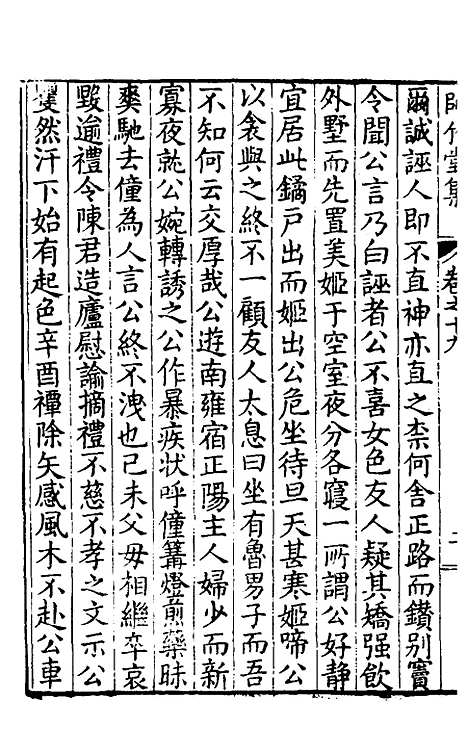 爾誠誣人即不直神亦直之柰何舍正路而鑚别竇
令聞公言乃白誣者公不喜女色友人疑其矯强飲
外墅而先置美姬于空室夜分各寢一所謂公好静
宜居此鐍戸出而姬出公危坐待旦天甚寒姬啼公
以衾與之終不一顧友人太息曰坐有魯男子而吾
不知何云交厚哉公遊南雍宿正陽主人婦少而新
寡夜就公婉轉誘之公作暴疾状呼僮篝燈煎藥昧
爽馳去僮為人言公終不洩也己未父母相繼卒哀
毀逾禮令陳君造廬慰諭摘禮不慈不孝之文示公
蘧然汗下始有起色辛酉禫除矢感風木不赴公車